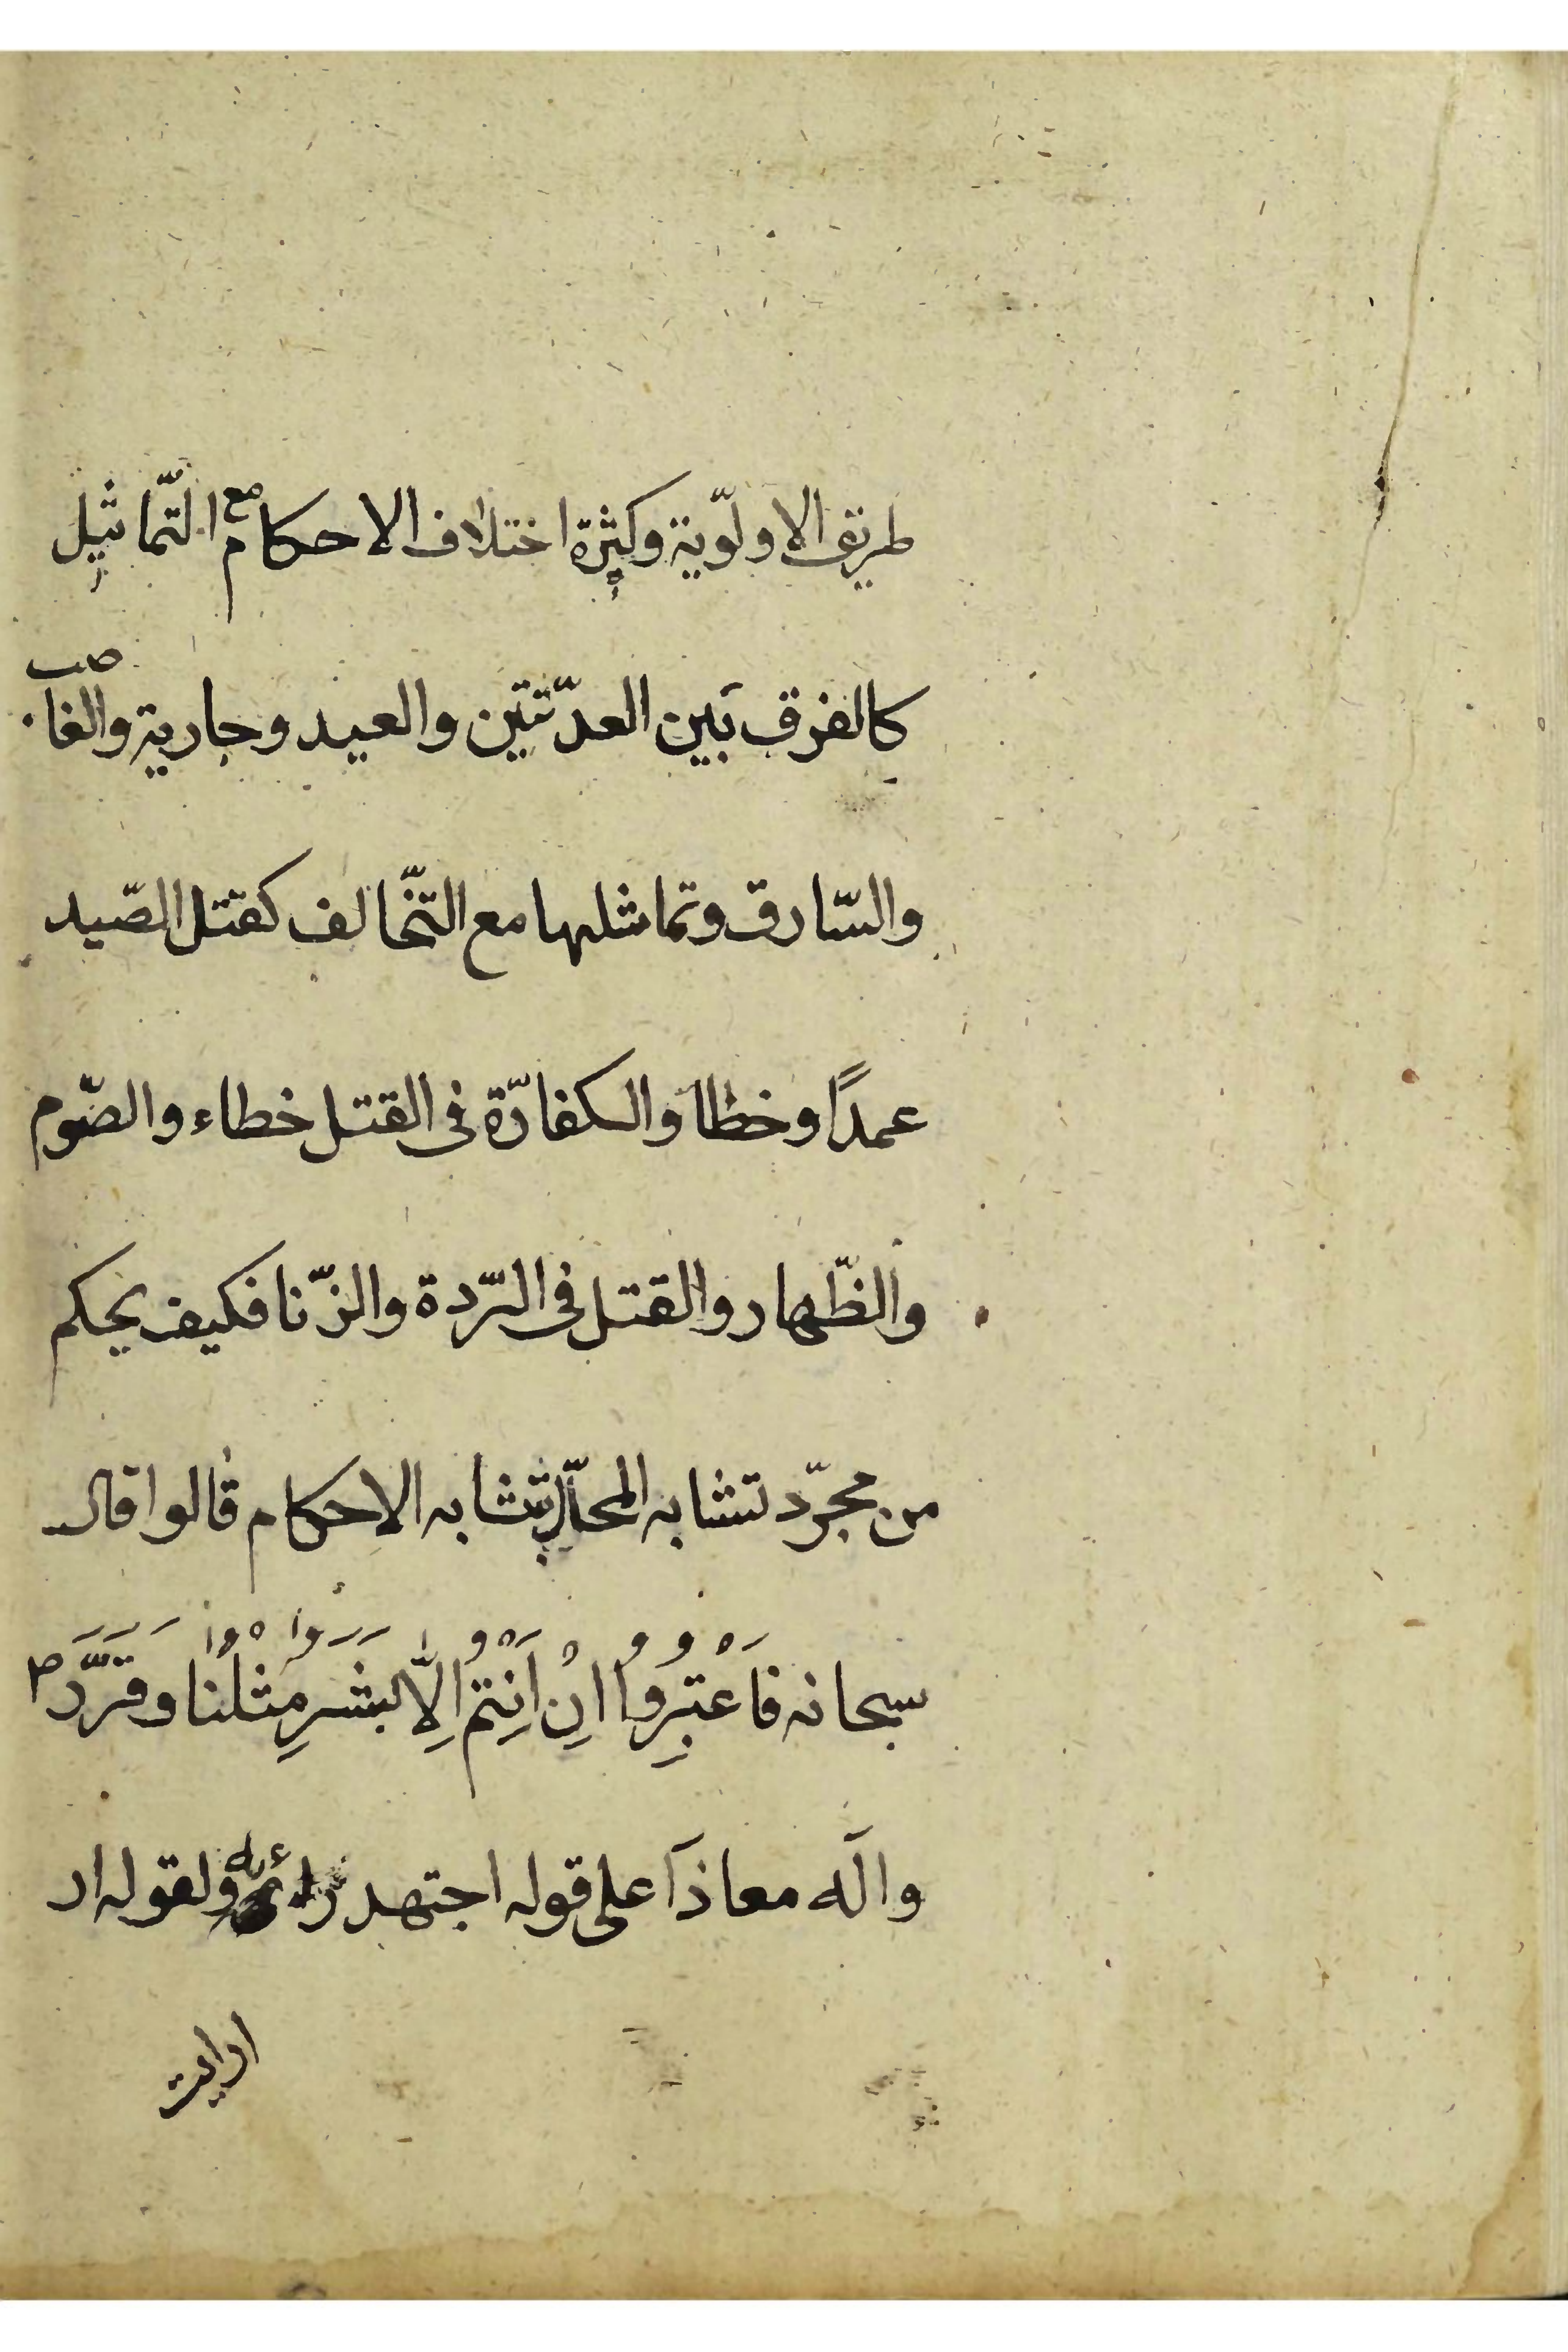 طريق الاولوّية وكثرة اختلاف الاحكام مع التّماثيل
كالفرق بَين العدّتتين والعيد وجارية والغاصب
والسّارق وتماثلها مع التّخالف كقتل الصّيد
عمدًا وخطا والكفارّة فى القتل خطاء والصّوم
والظّهار والقتل فى الرّدة والزّنا فكيف يحكم
من مجرّد تشابه المحاّل بتشابه الاحكام قالوا قال
سبحانه فَاعْتَبِرُوا اِنْ اَنْتُمْ اِلاَّ بَشَرٌ مِثْلُنَا وقَرَّرَ ص
واله معاذا على قوله اجتهد رائيه ولقوله ار
ارايت